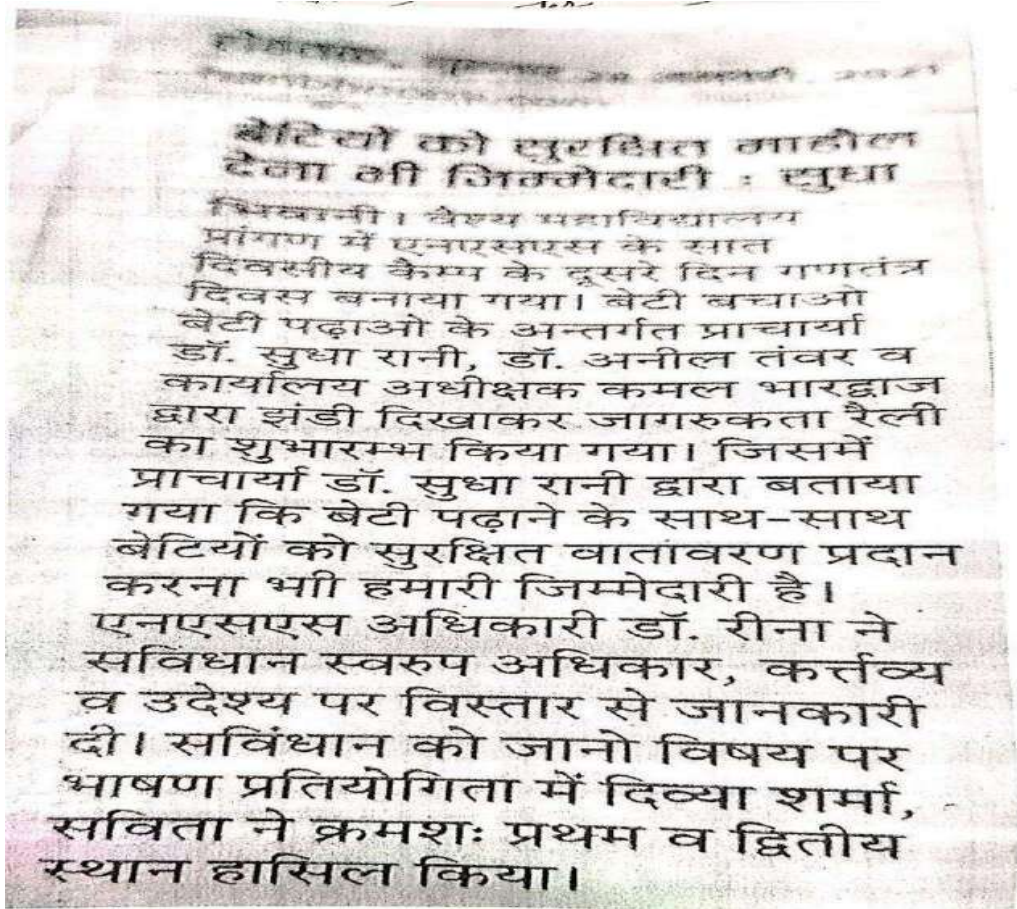 बेटियों को सुरक्षित माहौल
देना भी जिम्मेदारी : सुधा
भिवानी। वैश्य महाविद्यालय
प्रांगण में एनएसएस के सात
दिवसीय कैम्प के दूसरे दिन गणतंत्र
दिवस बनाया गया। बेटी बचाओ
बेटी पढ़ाओ के अन्तर्गत प्राचार्या
डॉ. सुधा रानी, डॉ. अनील तंवर व
कार्यालय अधीक्षक कमल भारद्वाज
द्वारा झंडी दिखाकर जागरुकता रैली
का शुभारम्भ किया गया। जिसमें
प्राचार्या डॉ. सुधा रानी द्वारा बताया
गया कि बेटी पढ़ाने के साथ-साथ
बेटियों को सुरक्षित वातावरण प्रदान
करना भाी हमारी जिम्मेदारी है।
एनएसएस अधिकारी डॉ. रीना ने
सविधान स्वरुप अधिकार, कर्त्तव्य
व उदेश्य पर विस्तार से जानकारी
दी। सविंधान को जानो विषय पर
भाषण प्रतियोगिता में दिव्या शर्मा,
सविता ने क्रमशः प्रथम व द्वितीय
स्थान हासिल किया।